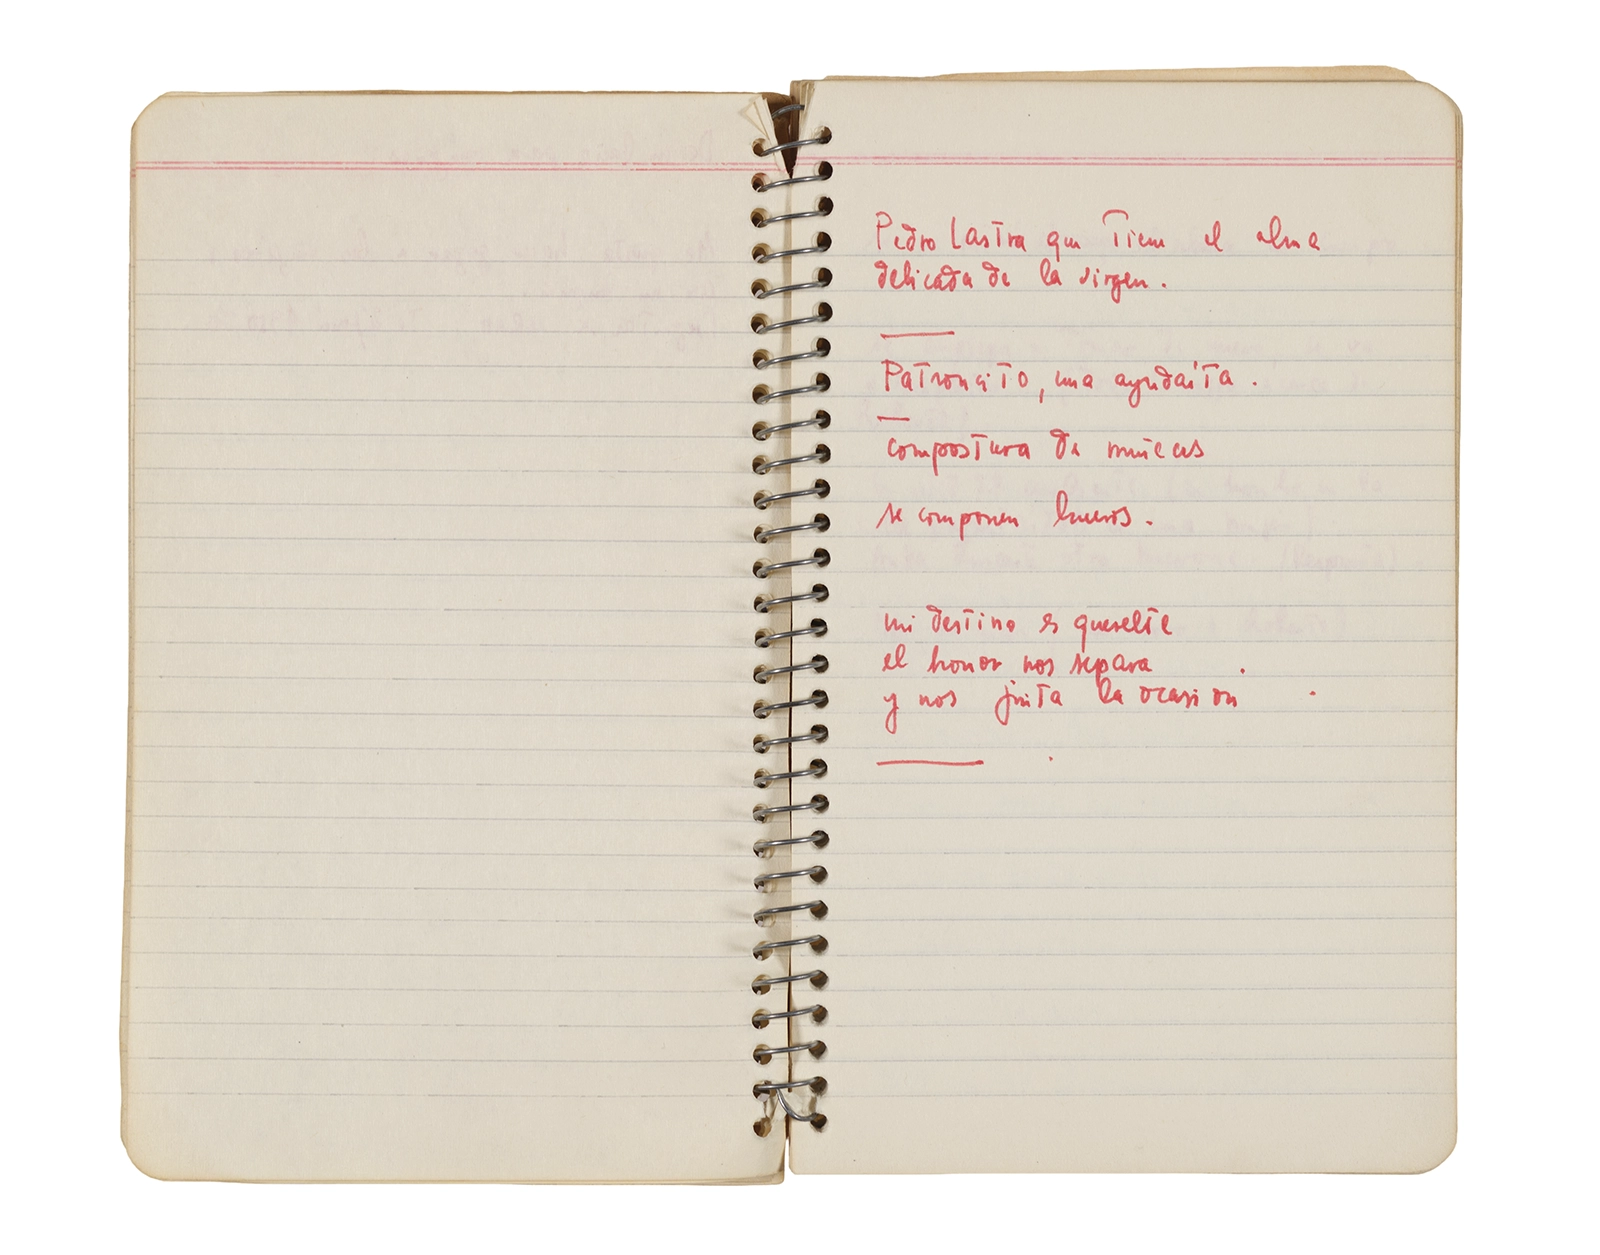 Pedro Lastra que tiene el alma
delicada de la virgen.
Patroncito, una ayudaíta.
compostura de muñecas
se componen huesos.
mi destino es quererte
el honor nos separa
y nos junta la ocasión